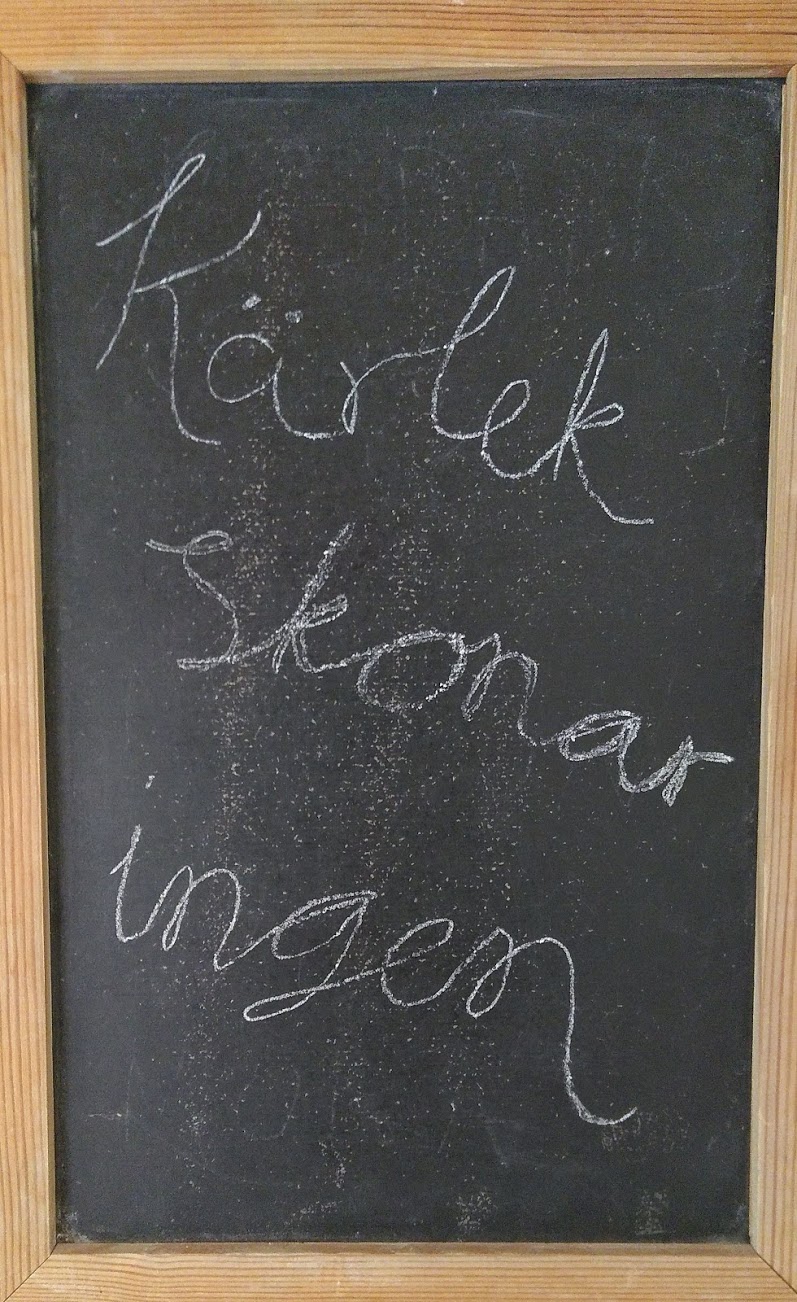 Kärlek
Skonar
ingen